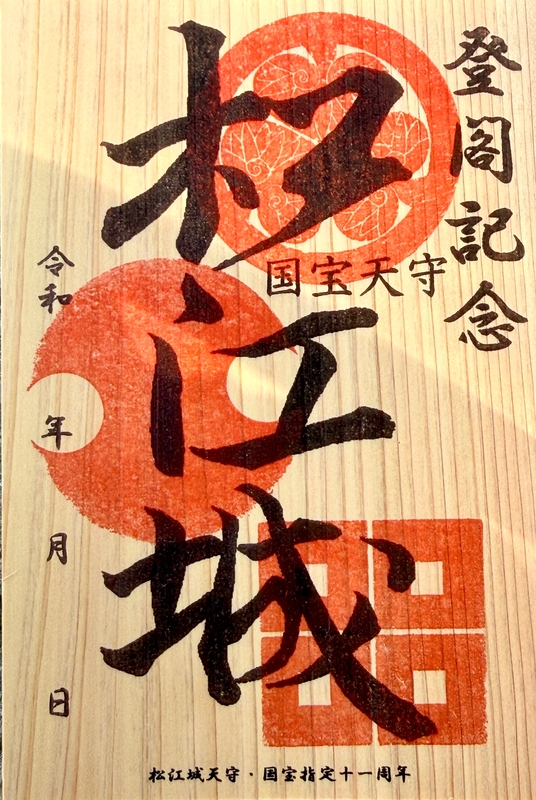 登閣記念
国宝天守
松江城
令和 年 月 日
松江城天守・国宝指定十一周年